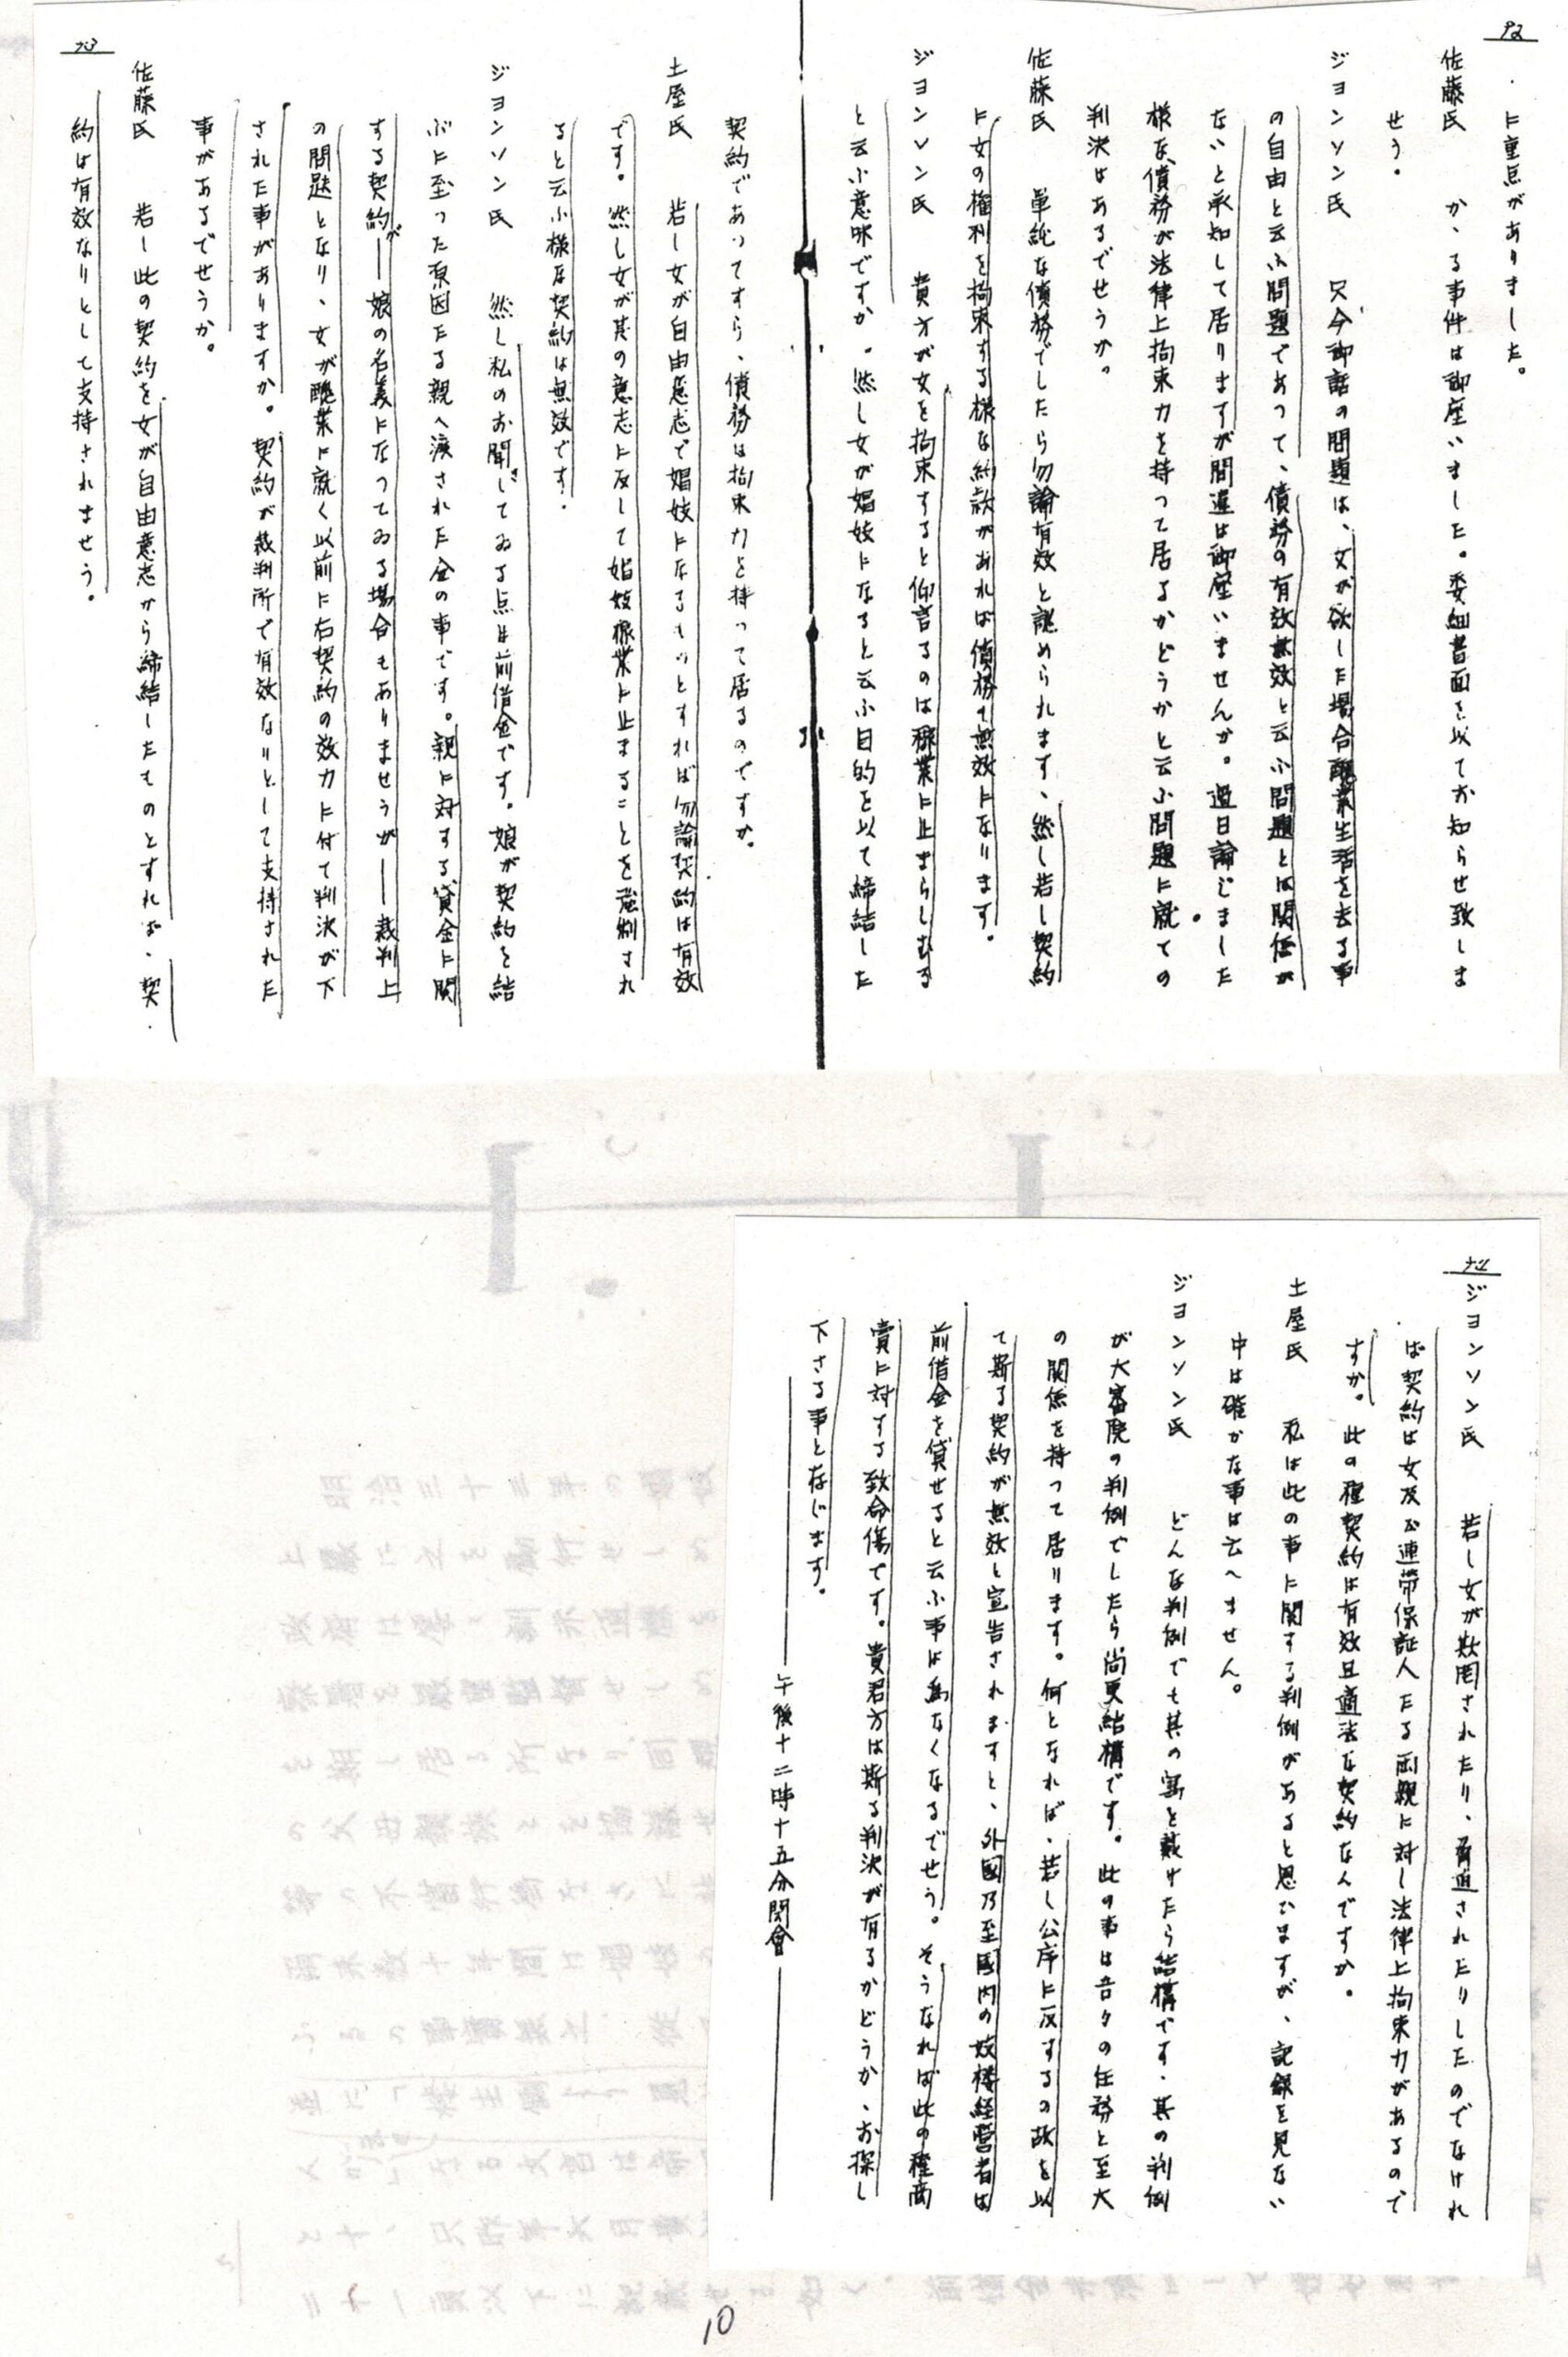 92
に重点がありました。
佐藤氏　かゝる事件は御座いました。委細書面を以てお知らせ致しま
せう。
ジョンソン氏　只今御話の問題は、女が欲した場合醜業生活を去る事
の自由と云ふ問題であつて、債務の有效無效と云ふ問題とは関係が
ないと承知して居りますが間違は御座いませんか。過日論じました
様な債務が法律上拘束力を持つて居るかどうかと云ふ問題に就ての
判決はあるでせうか。
佐藤氏　単純な債務でしたら勿論有效と認められます、然し若し契約
に女の権利を拘束する様な約款があれば債務も無效になります。
ジヨンソン氏　貴方が女を拘束すると仰言るのは稼業に止まらしむる
と云ふ意味ですか。然し女が娼妓になると云ふ目的を以て締結した
契約であつてすら、債務は拘束力を持つて居るのですか。
土屋氏　若し女が自由意志で娼妓になるものとすれば勿論契約は有效
です。然し女が其の意志に反して娼妓稼業に止まることを強制され
ると云ふ様な契約は無效です。
ジヨンソン氏　然し私のお聞してゐる点は前借金です。娘が契約を結
ぶに至つた原因たる親へ渡された金の事です。親に対する貸金に関
する契約が——娘の名義になつてゐる場合もありませうが——裁判上
の問題となり、女が醜業に就く以前に右契約の效力に付て判決が下
された事がありますか。契約が裁判所で有效なりとして支持された
事があるでせうか。
佐藤氏　若し此の契約を女が自由意志から締結したものとすれば、契
約は有效なりとして支持されませう。
ジヨンソン氏　若し女が欺罔されたり、脅迫されたりしたのでなけれ
ば契約は女及び連帯保証人たる両親に対し法律上拘束力があるので
すか。此の種契約は有效且適法な契約なんですか。
土屋氏　私は此の事に関する判例があると思ひますが、記録を見ない
中は確かな事は云へません。
ジヨンソン氏　どんな判例でも其の写を戴けたら結構です。其の判例
が大審院の判例でしたら尚更結構です。此の事は吾々の任務と至大
の関係を持つて居ります。何となれば、若し公序に反するの故を以
て斯る契約が無效と宣告されますと、外國乃至國内の妓楼経営者は
前借金を貸せると云ふ事は為なくなるでせう。そうなれば此の種商
賣に対する致命傷です。貴君方は斯る判決が有るかどうか、お探し
下さる事と存じます。
午後十二時十五分閉會
10